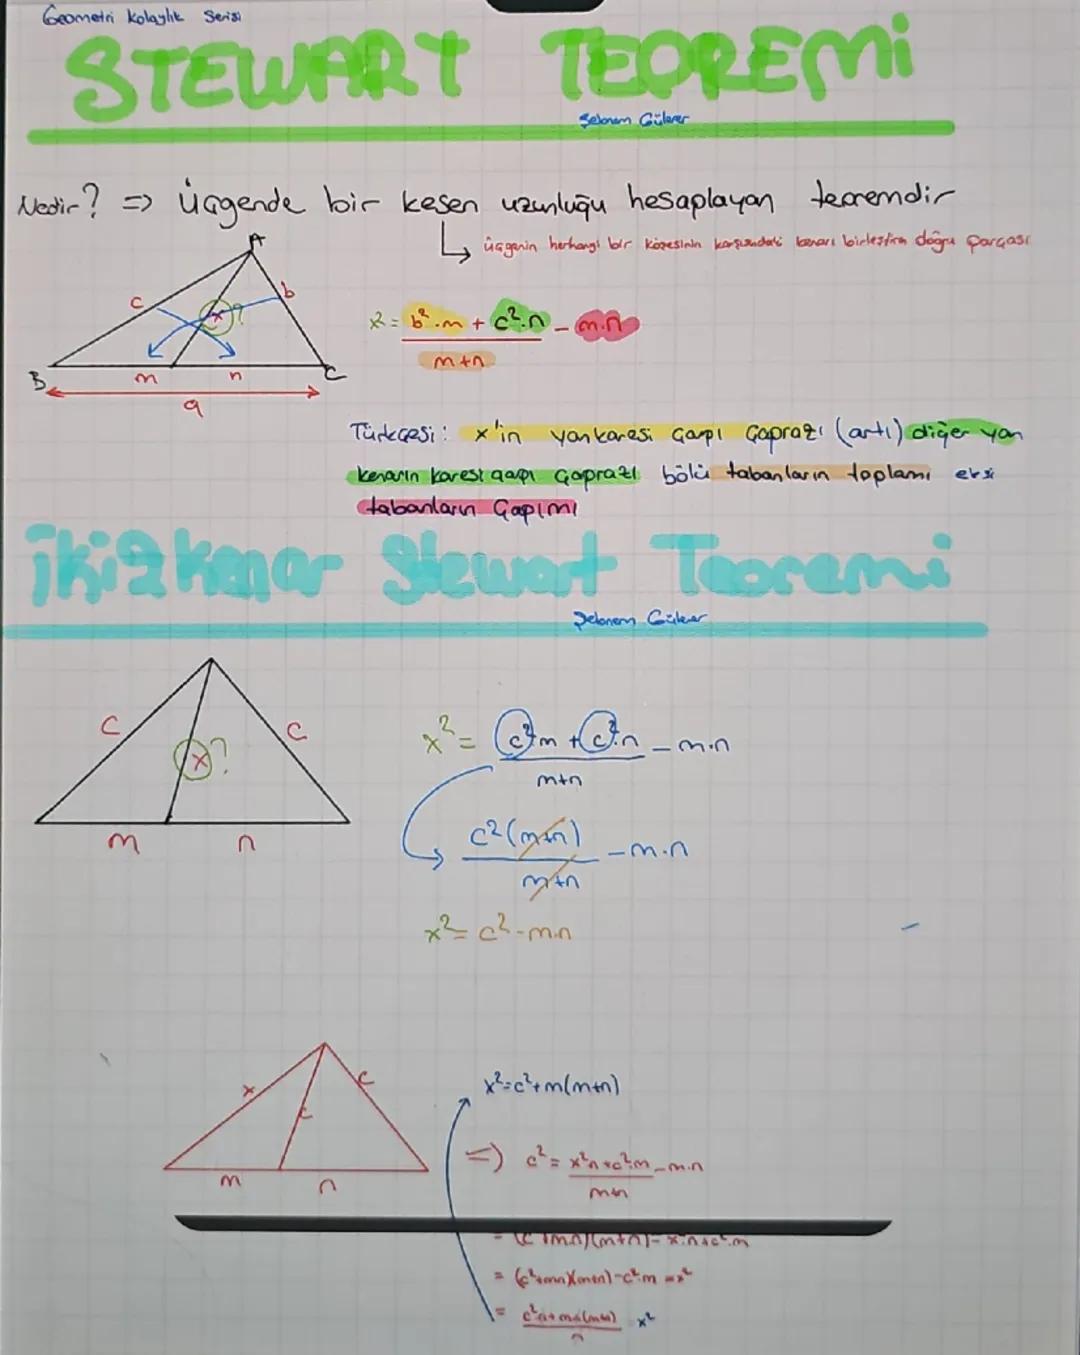 Geometri Kolaylık Serisi
STEWART TEOREMİ
Şebnem Gülener
Nedir? => Üçgende bir kesen uzunluğu hesaplayan teoremdir
üçgenin herhangi bir köşesinin karşısındaki kenarı birleştiren doğru parçası
A
c
x ?
b
x² = b².m + c².n - m.n
m+n
B
m
n
C
a
Türkçesi: x'in yan karesi çarpı çaprazı (artı) diğer yan
kenarın karesi çarpı çaprazı bölü tabanların toplamı eksi
tabanların çarpımı
İkizkenar Stewart Teoremi
Şebnem Gülener
c
c
x ?
x² = c².m + c².n - m.n
m+n
m
n
c²(m+n) - m.n
m+n
x² = c² - m.n
x
c
c
x² = c² + m(m+n)
=> c² = x²n + c².m - m.n
m+n
m
n
= (c²+mn)(m+n) - c².m = x²
= c²n + mn(m+n) x²
n